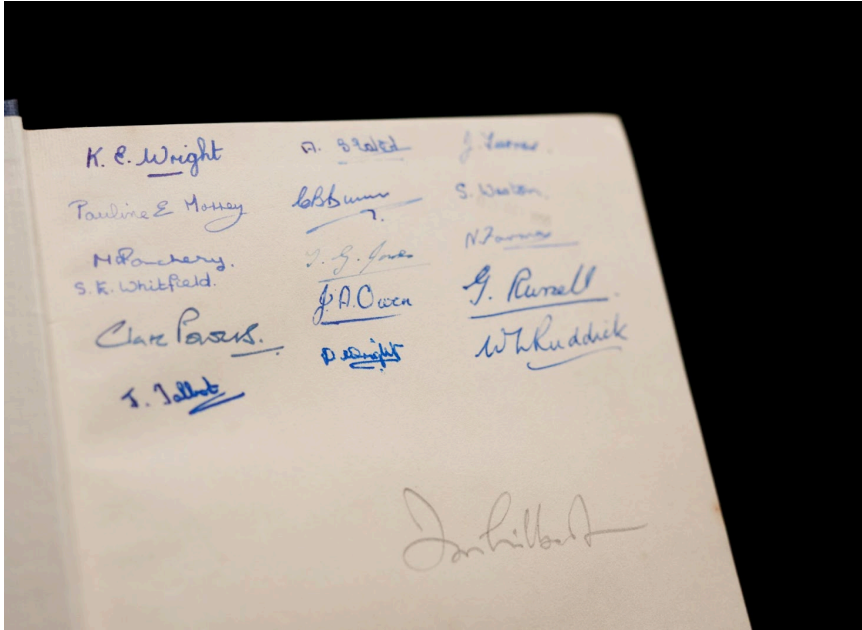 K. E. Wright
Pauline E Massey
S. K. Whitfield.
Clare Powers.
J. Talbot
A.
T. G. Jones
J. A. Owen
D. Wright
J. Turner.
S. Weston.
N. Farmer
G. Russell.
W L Ruddick